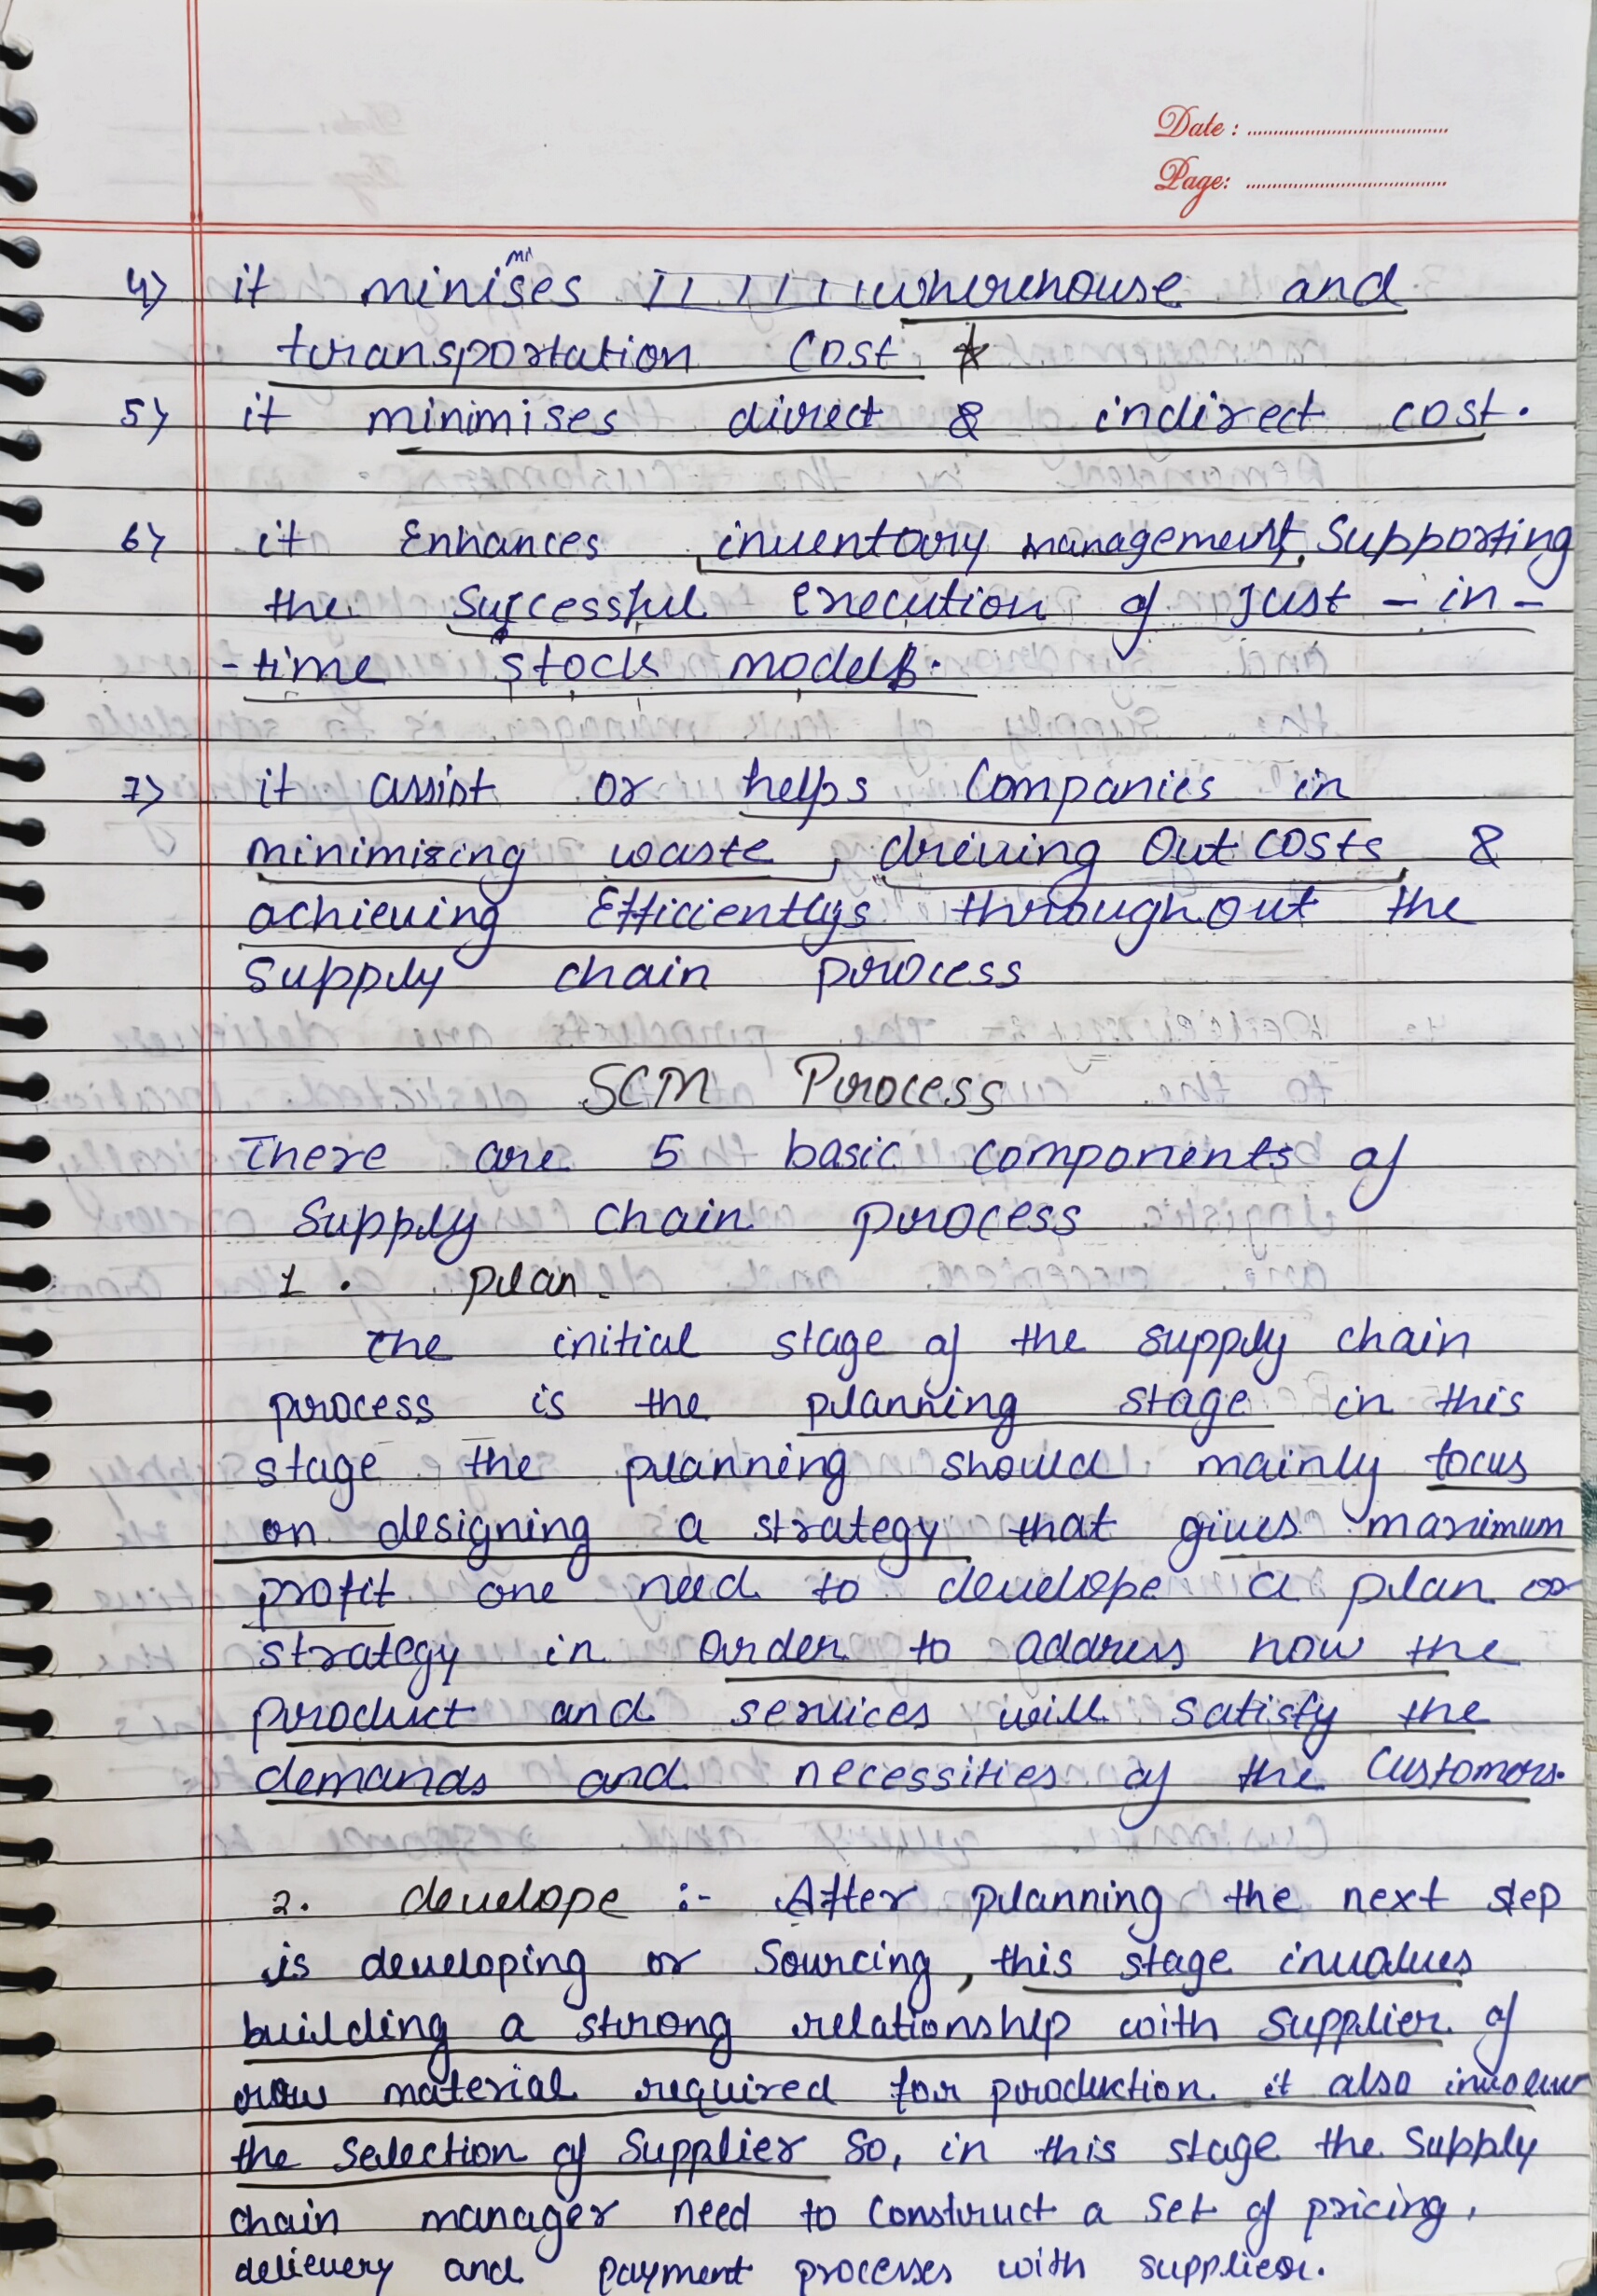 Date :
Page:
4) it minises wherehouse and
transportation cost
5) it minimises direct & indirect cost.
6) it Enhances inventory management, Supporting
the Successful Execution of Just - in -
- time stock models.
7) it assist or helps Companies in
minimizing waste, driving Out costs, &
achieving Efficientlys throughout the
supply chain process
SCM Process
There are 5 basic components of
Supply chain process
1. plan.
The initial stage of the supply chain
process is the planning stage in this
stage the planning should mainly focus
on designing a strategy that gives maximum
profit one need to develope a plan or
strategy in order to address how the
product and services will satisfy the
demands and necessities of the Customers.
2. develope :- After planning the next step
is developing or Sourcing, this stage involves
building a strong relationship with Supplier of
raw material required for production. it also involves
the Selection of Supplier So, in this stage the Supply
chain manager need to Construct a Set of pricing,
delievery and payment processes with supplier.